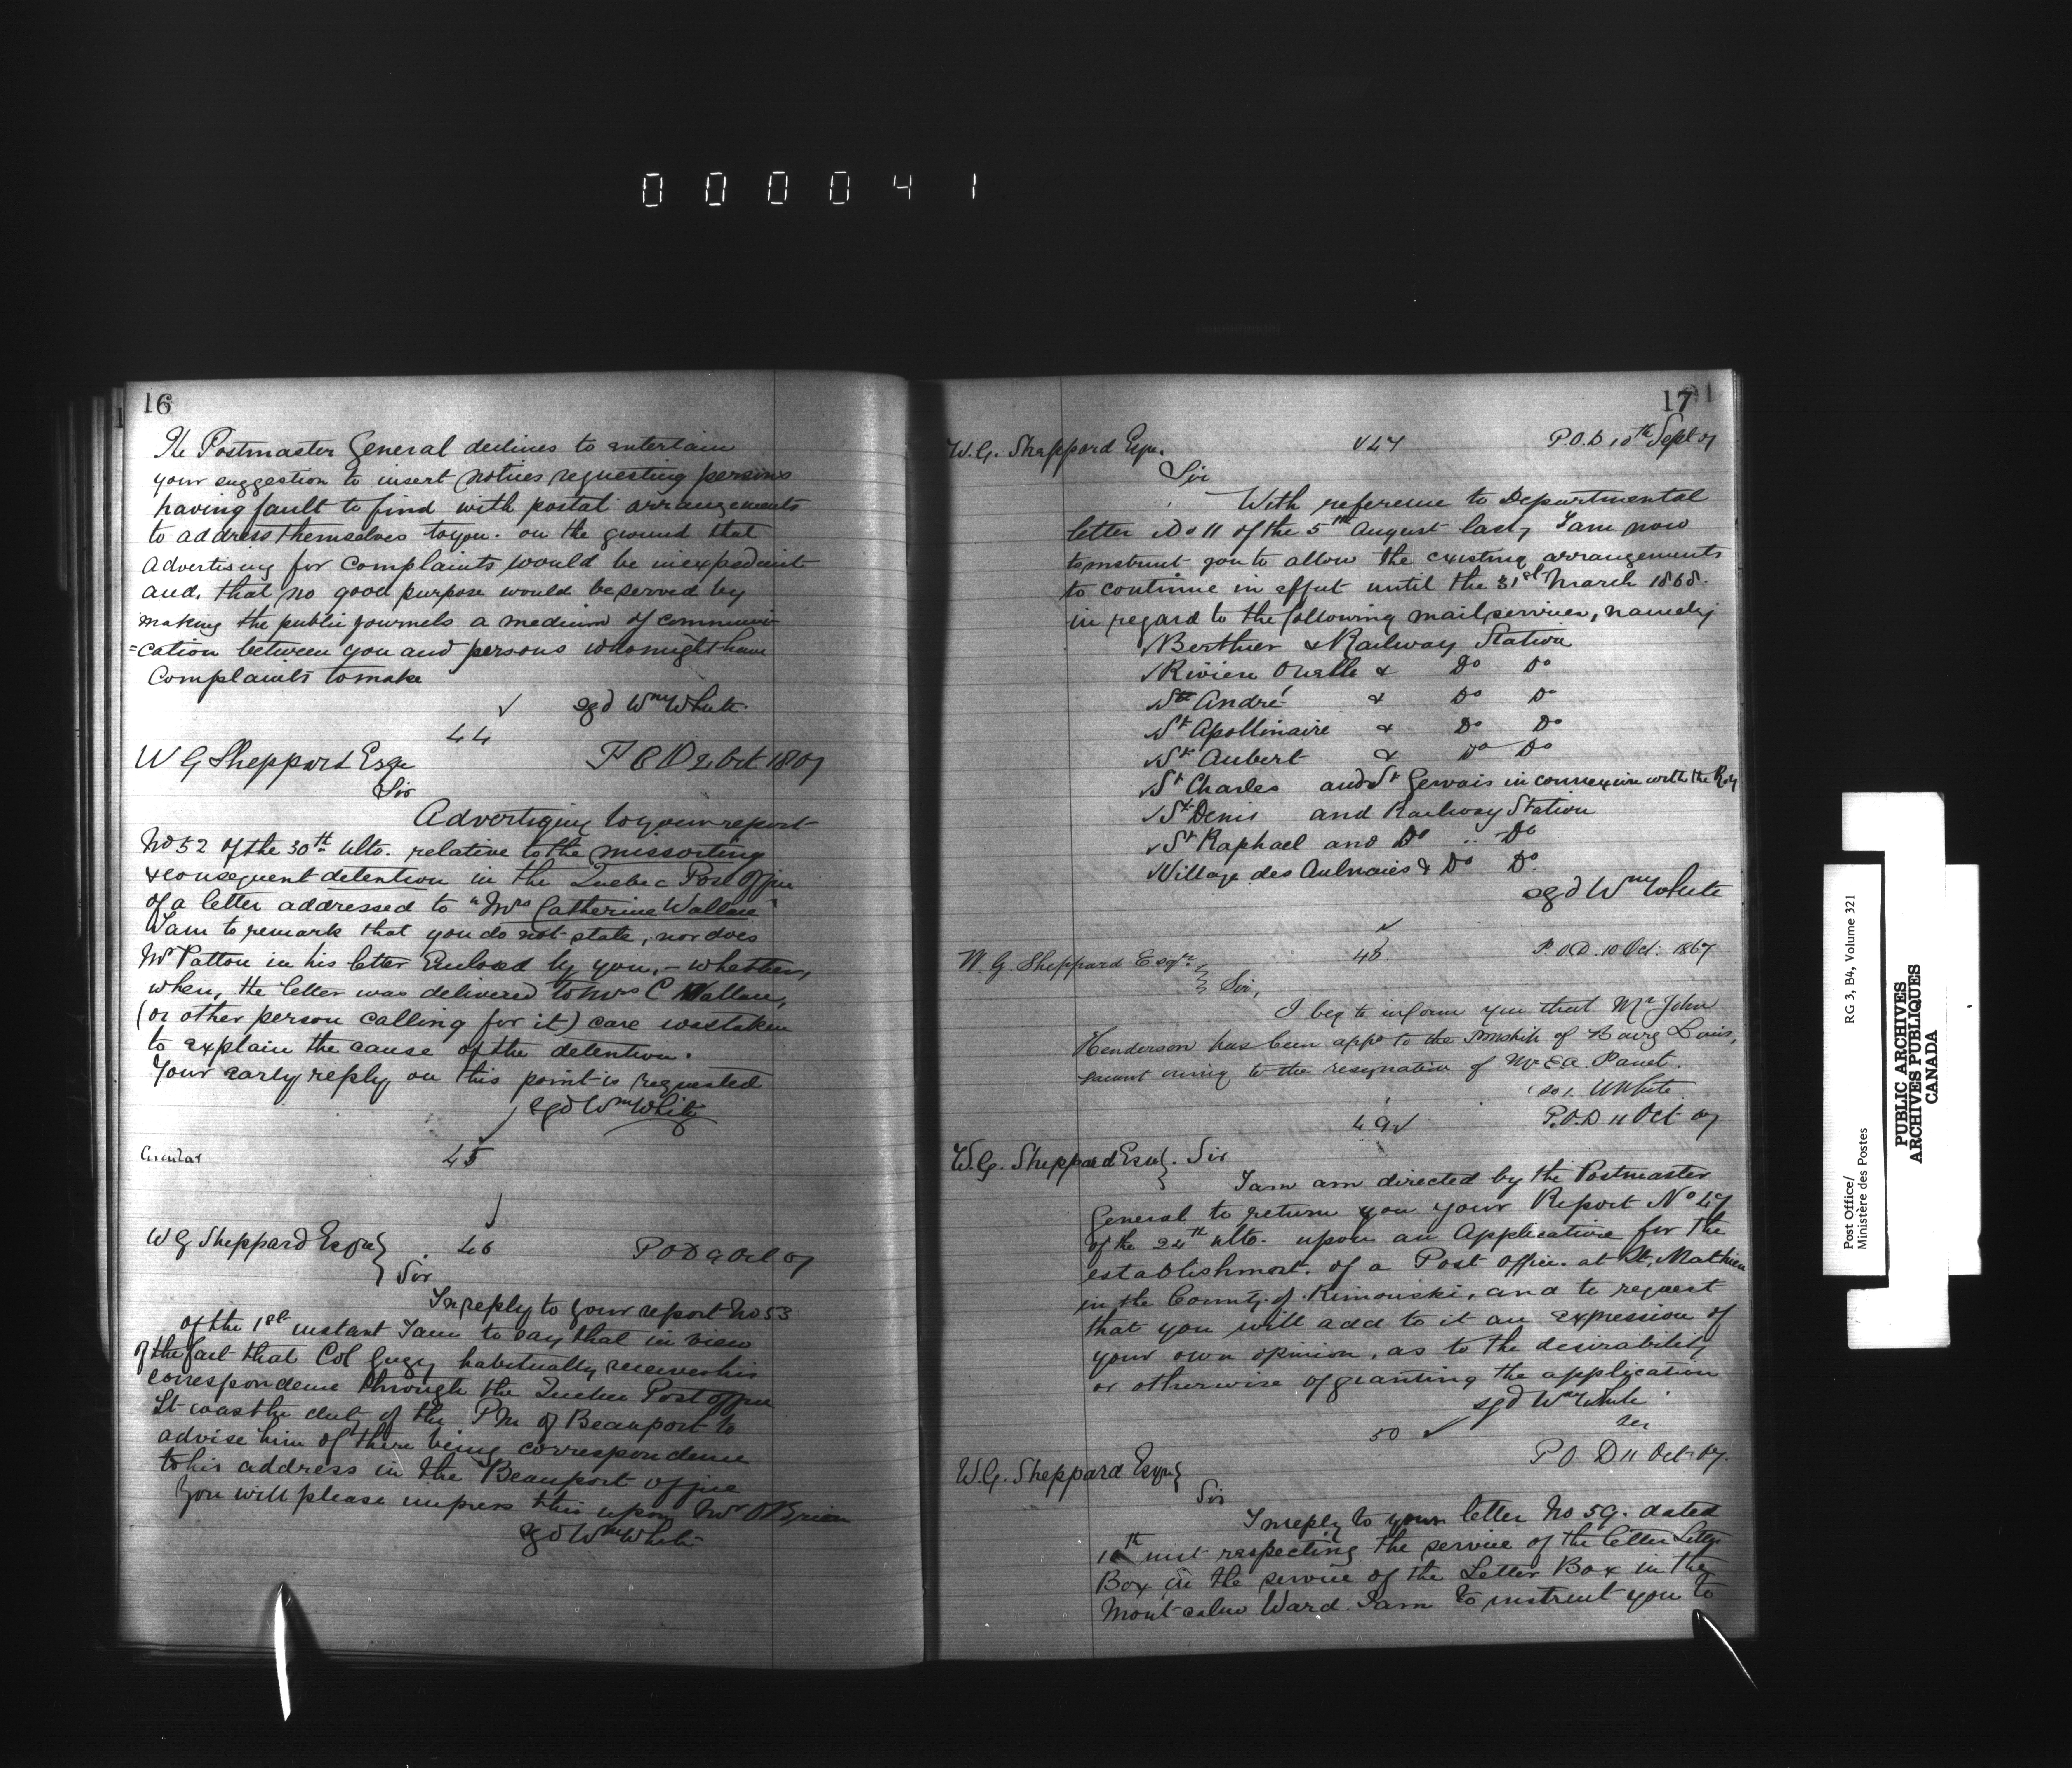 000041
16
The Postmaster General declines to entertain
your suggestion to insert notices requesting persons
having fault to find with postal arrangements
to address themselves to you. on the ground that
advertising for complaints would be inexpedient
and, that no good purpose would be served by
making the public journals a medium of communi
=cation between you and persons who might have
Complaints to make
sgd Wm White.
44
W G Sheppard Esqe
P O D 2 Oct. 1867
Sir
Advertizing to your report
No 52 of the 30th ulto. relative to the missorting
& consequent detention in the Quebec Post Office
of a letter addressed to "Mrs Catherine Wallace"
I am to remark that you do not state, nor does
Mr Patton in his letter Enclosed by you, – whether,
when, the letter was delivered to Mrs C Wallace,
(or other person calling for it) care was taken
to explain the cause of the detention.
Your early reply on this point is requested
sgd Wm White
Circular
45
W G Sheppard Esqre
46
P O D 9 Oct 67
Sir
In reply to your report No 53
of the 1st instant I am to say that in view
of the fact that Col Gugy habitually receives his
correspondence through the Quebec Post office
It was the duty of the P M of Beauport to
advise him of there being correspondence
to his address in the Beauport office
You will please impress this upon Mr O'Brien
sgd Wm White
17
W. G. Sheppard Esqr.
47
P.O.D 10th Sept 67
Sir
With reference to Departmental
letter No 11 of the 5th August last, I am now
to instruct you to allow the existing arrangements
to continue in effect until the 31st March 1868.
in regard to the following mail services, namely
Berthier & Railway Station
Riviere Ouelle & Do Do
St André & Do Do
St Apollinaire & Do Do
St Aubert & Do Do
St Charles and St Gervais in connexion with the Ry
St Denis and Railway Station
St Raphael and Do .. Do
Village des Aulnaies & Do Do.
sgd Wm White
W. G. Sheppard Esqre
48
P.O.D. 10 Oct. 1867
Sir,
I beg to inform you that Mr John
Henderson has been appd to the Pmship of Bourg Louis,
vacant owing to the resignation of Mr E A. Panet.
W White
49
P.O.D 11 Oct 67
W. G. Sheppard Esqr. Sir
I am am directed by the Postmaster
General to return you your Report No 47
of the 24th ulto. upon an Application for the
establishment. of a Post Office. at St, Mathieu
in the County. of. Rimouski, and to request
that you will add to it an expression of
your own opinion, as to the desirability
or otherwise of granting the application
sgd Wm White
Sec
50
P O D 11 Oct 67.
W. G. Sheppard Esqr
Sir
In reply to your letter No 59. dated
10th inst respecting the service of the letter Letter
Box in the service of the Letter Box in the
Mont-calm Ward. I am to instruct you to
Post Office/ RG 3, B4, Volume 321
Ministère des Postes
PUBLIC ARCHIVES
ARCHIVES PUBLIQUES
CANADA